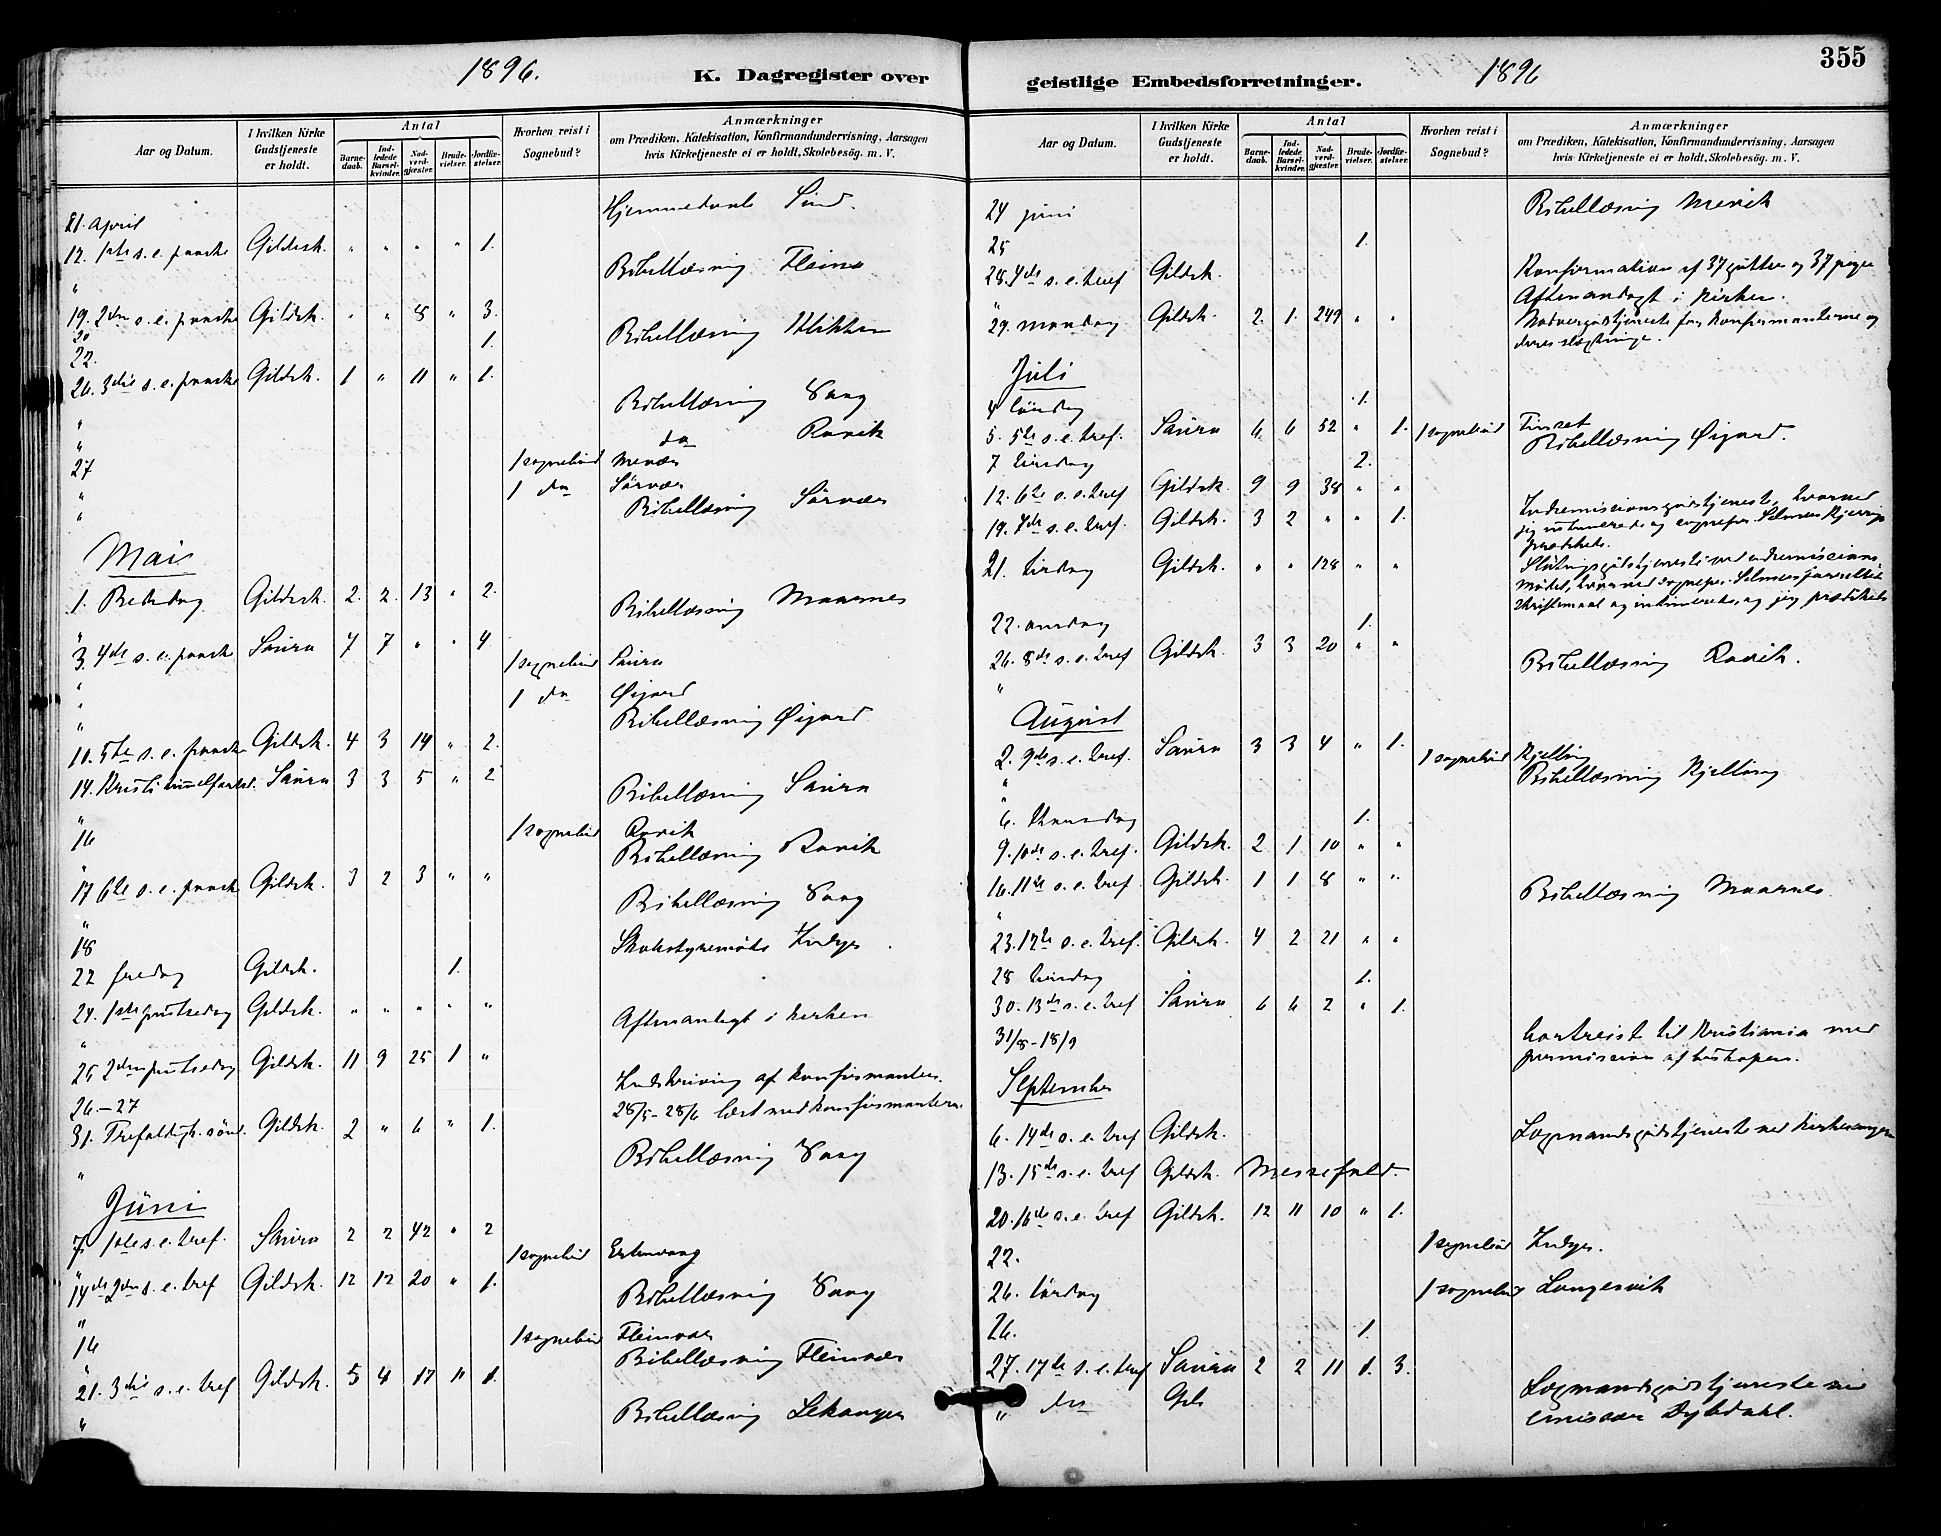 1896.
K. Dagregister over
Aar og Datum.
I hvilken Kirke Gudstjeneste er holdt.
Antal
Barnedaab.
Indledede Barselkvinder.
Nadverdgjæster.
Brudevielser.
Jordfæstelser.
Hvorhen reist i Sognebud?
Anmærkninger
om Prædiken, Katekisation, Konfirmandundervisning, Aarsagen hvis Kirketjeneste ei er holdt, Skolebesög. m. V.
21. april Hjemmedaab
12. 1ste s. e. paaske Gildesk. " " " " 1.
" Bibellæsning Fleina
19. 2den s. e. paaske Gildsk. " " 8 " 3.
20 Bibellæsning
22. 1.
26. 3die s. e. paaske Gildsk. 1 " 11 " 1.
" Bibellæsning Vaag
" do Rønvik
27 1 sognebud
" 1 do Sörvær
" Bibellæsning Sörvær
Mai
1. Bededag Gildesk. 2. 2. 13 " 2.
" Bibellæsning Maarnes
3. 4de s. e. paaske Saura 7 7 " " 4
" 1 sognebud Saura
" 1 do Øijord
" Bibellæsning Øijord
10. 5te s. e. paaske Gildsk. 4 3 14 " 2.
14. Kristi himmelfartsd. Saura 3 3 5 " 2
" Bibellæsning Saura
16 1 sognebud Rønvik
" Bibellæsning Rønvik
17 6te s. e. paaske Gildsk. 3 2 3 " "
" Bibellæsning Vaag
18 Skolestyremöte Indyr.
22 fredag Gildsk. 1.
24. 1ste pintsedag Gildsk. " " " " "
" Aftenandagt i kirken
25 2den pintsedag Gildsk. 11 9 25 1 "
26–27 Indskrivning af konfirmanter.
28/5–28/6 læst med konfirmanterne
31. Trefoldigh. sönd. Gildsk. 2 " 6 " 1.
" Bibellæsning Vaag
Juni
7. 1ste s. e. tref. Saura 2 2 42 " 2
" 1 sognebud
14de 2den s. e. tref Gildsk. 12 12 20 " 1.
" Bibellæsning Vaag
16 1 sognebud Fleinvær
" Bibellæsning Fleinvær
21. 3die s. e. tref Gildsk. 5 4 17 " 1.
" Bibellæsning Lekanger
geistlige Embedsforretninger.
1896
355
Aar og Datum.
I hvilken Kirke Gudstjeneste er holdt.
Antal
Barnedaab.
Indledede Barselkvinder.
Nadverdgjæster.
Brudevielser.
Jordfæstelser.
Hvorhen reist i Sognebud?
Anmærkninger
om Prædiken, Katekisation, Konfirmandundervisning, Aarsagen hvis Kirketjeneste ei er holdt, Skolebesög. m. V.
24 juni Bibellæsning Mevik
25 1.
28. 4de s. e. tref Gildsk. Konfirmation af 37 gutter og 37 piger
" Aftenandagt i kirken.
29. mandag Gildsk. 2. 1. 249 " " Nadvergudstjeneste for konfirmanterne og
deres slægtninge.
Juli
4 löndag 1.
5. 5te s. e. tref. Saura 6 6 52 " 1. 1 sognebud
Bibellæsning Øijord.
7 tirsdag 2.
12. 6te s. e. tref Gildsk. 9 9 38 " "
19. 7de s. e. tref. Gildsk. 3 2 " " 1. Indremissionsgudstjeneste, hvorved
jeg intonerede og sogneprest Selmer
prædikede.
21. tirsdag Gildsk. " " 128 " " Slutningsgudstjeneste ved indremissions
mödet, hvorved sogneprest Selmer forrettede
skriftemaal og intonerede, og jeg prædikede
22. onsdag 1.
26. 8de s. e. tref Gildsk. 3 3 20 " "
" Bibellæsning Rønvik.
August
2. 9de s. e. tref. Saura 3 3 4 " 1.
" 1 sognebud Kjelling
" Bibellæsning Kjelling
6. thorsdag 1.
9. 10de s. e. tref. Gildsk. 2 1 10 " "
16. 11te s. e. tref. Gildsk. 1 1 8 " "
" Bibellæsning Maarnes
23. 12te s. e. tref. Gildsk. 4 2 21 " "
28 1.
30. 13de s. e. tref Saura 6 6 2 " 1.
31/8–18/9 bortreist til Kristiania med
permission af biskopen.
September
6. 14de s. e. tref Gildsk. Lægmandsgudstjeneste ved kirkesanger
13. 15de s. e. tref Gildsk. Messefald.
20. 16de s. e. tref Gildsk. 12 11 10 " 1.
22. 1 sognebud Indyr.
26. lördag 1 sognebud Langesvik
26. 1.
27. 17de s. e. tref Saura 2 2 11 1. 3.
" do Gils Lægmandsgudstjeneste ved
emissær Dybdahl.